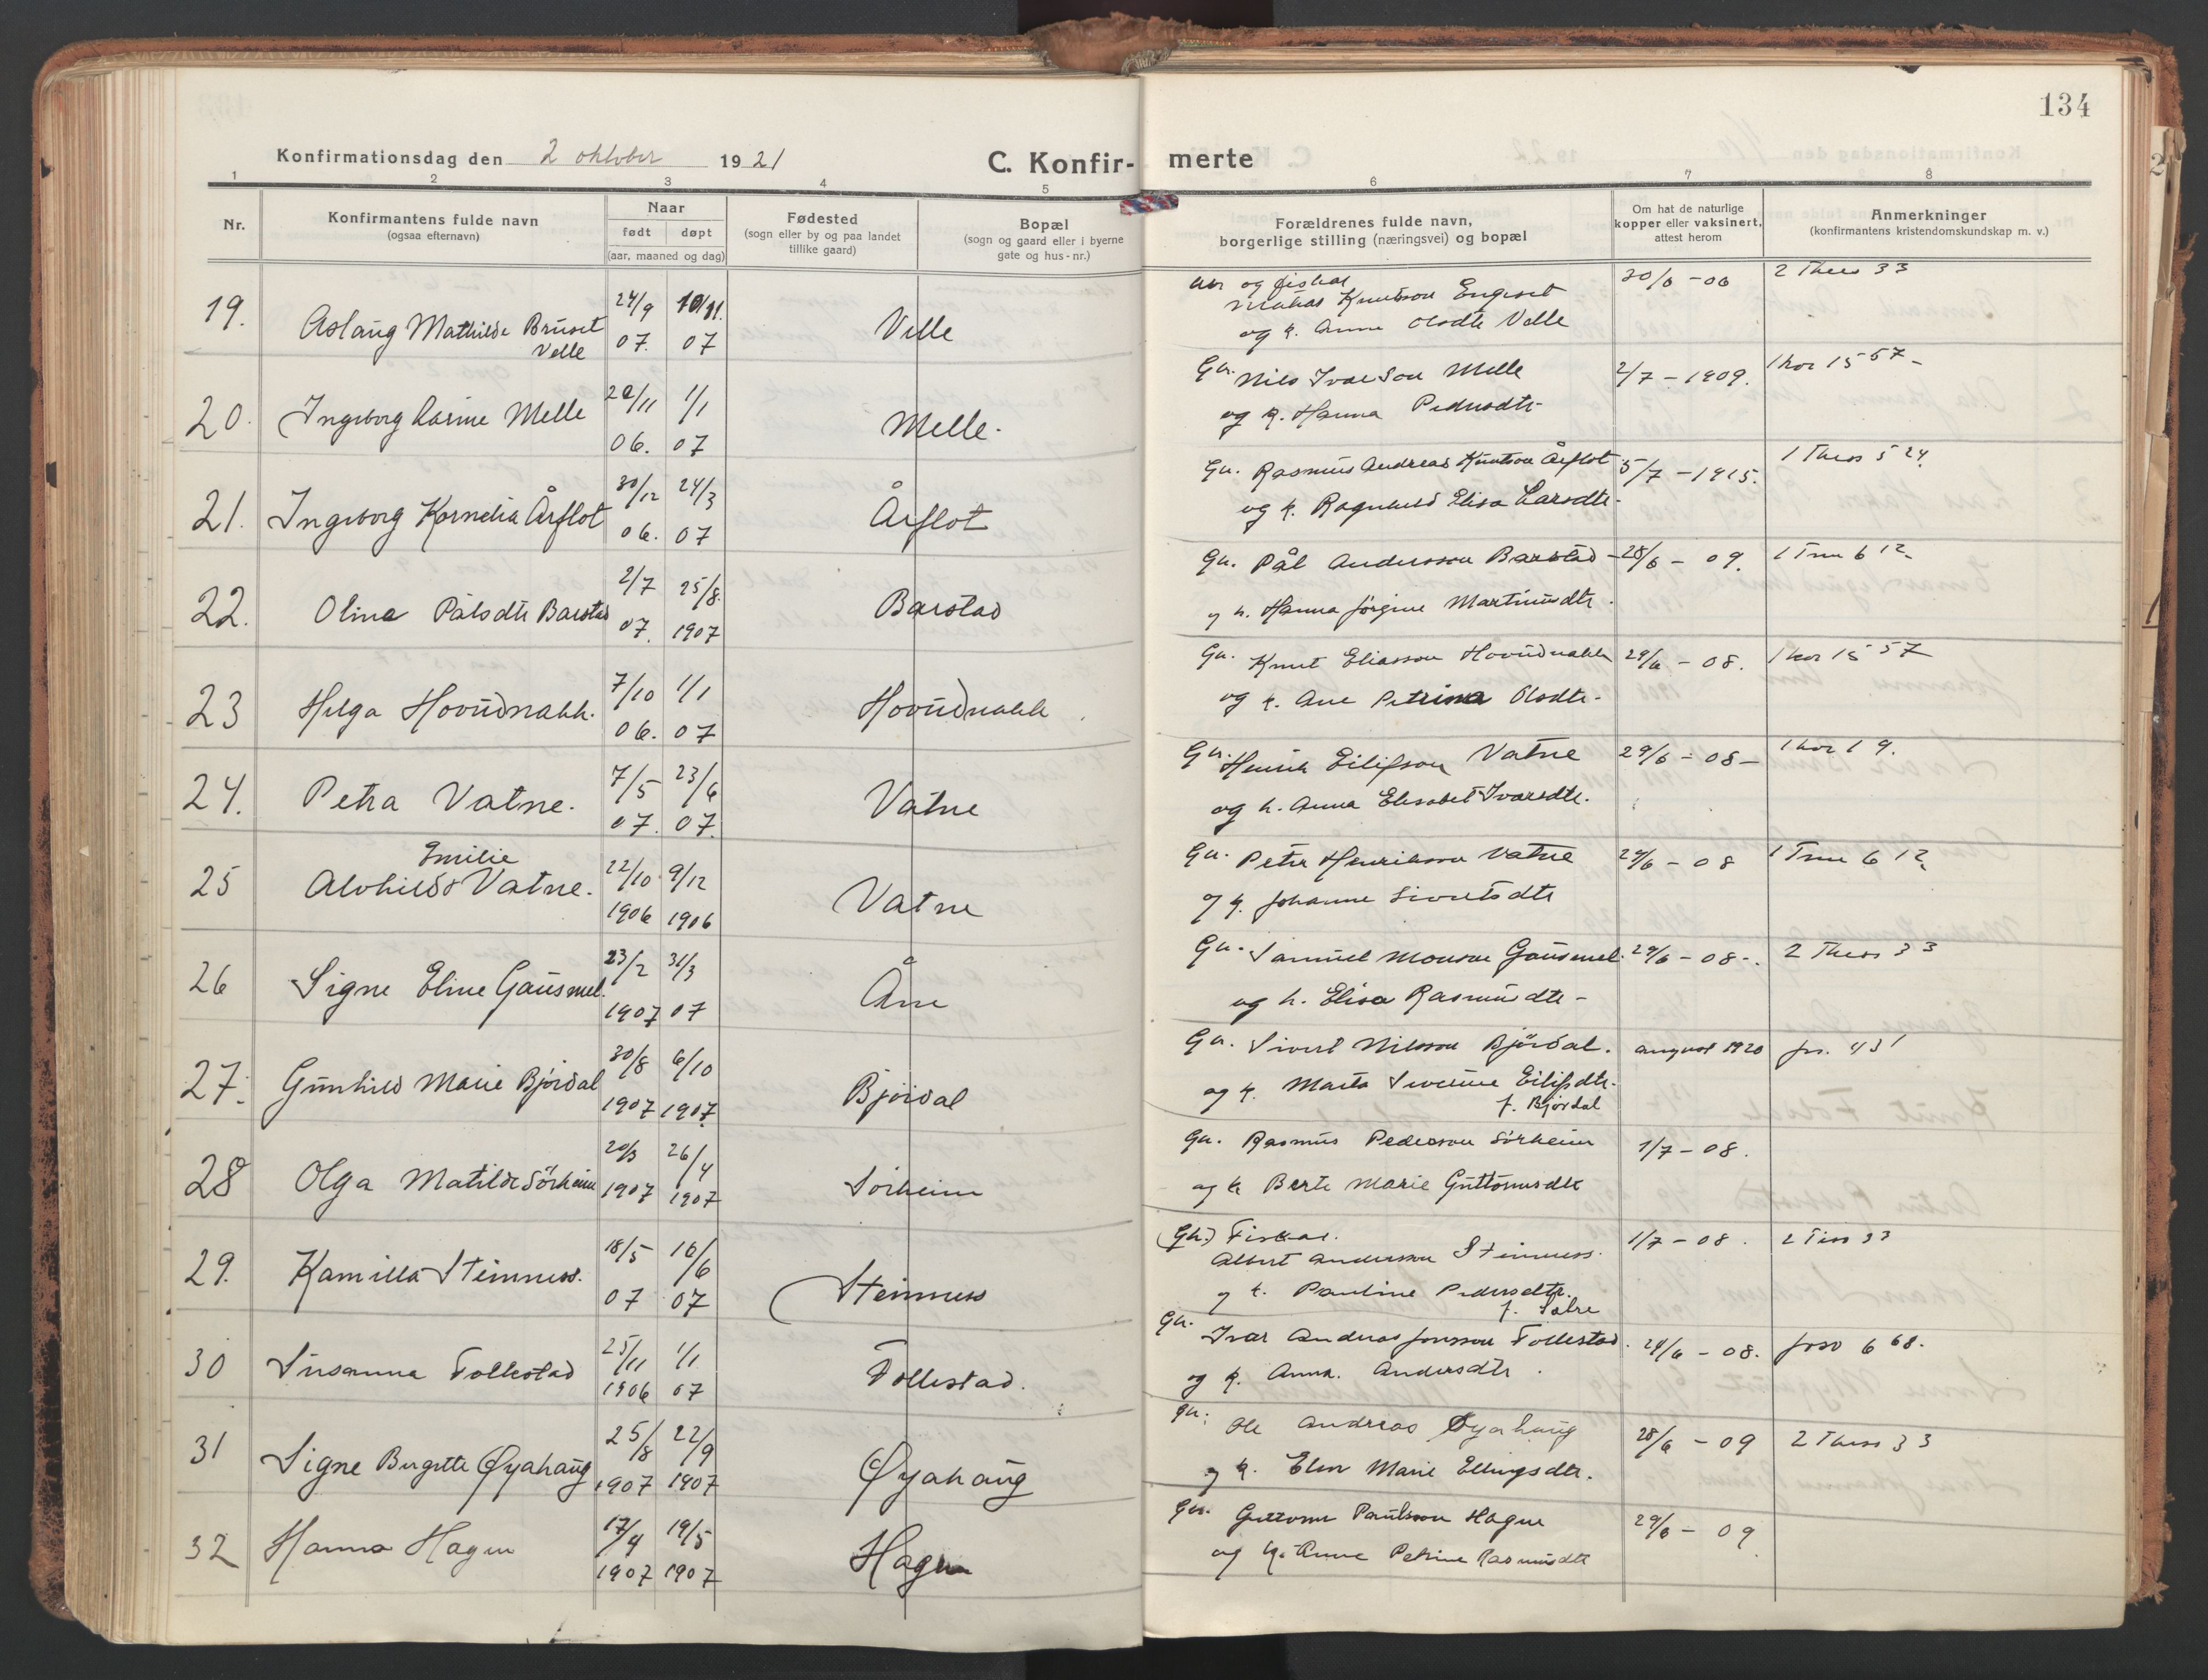 134
Konfirmationsdag den 2 oktober 1921
C. Konfir- merte
1 2 3 4 5 6 7 8
Nr.
Konfirmantens fulde navn
(ogsaa efternavn)
Naar
født døpt
(aar, maaned og dag)
Fødested
(sogn eller by og paa landet
tillike gaard)
Bopæl
(sogn og gaard eller i byerne
gate og hus-nr.)
Forældrenes fulde navn,
borgerlige stilling (næringsvei) og bopæl
Om hat de naturlige
kopper eller vaksinert,
attest herom
Anmerkninger
(konfirmantens kristendomskundskap m. v.)
19. Aslaug Mathilde Bruset 24/9 10/11.
Velle 07. 07 Velle
og fisker 30/6 - 06 2 Thess 3 3
Knutson Engeset
og k. Anne Olsdtr Velle
20. Ingeborg Karine Melle 28/11 1/1
06. 07 Melle.
Gu. Nils Ivarson Melle 2/7 - 1909. 1 kor 15 57 -
og k. Hanna Pedersdtr
21. Ingeborg Kornelia Årflot 30/12 24/3
06. 07 Årflot
Gu. Rasmus Andreas Knutson Årflot 5/7 - 1915. 1 Thess 5 24.
og k. Ragnhild Elisa Larsdtr.
22. Olina Pålsdtr Barstad 2/7 25/8.
07. 1907 Barstad
Gu. Pål Andersson Barstad - 28/6 - 09. 1 Tim 6 12.
og k. Hanna Jørgine Martinusdtr.
23 Helga Hovudnakk. 7/10 1/1
06. 07 Hovudnakk
Gu. Knut Eliasson Hovudnakk 29/6 - 08. 1 kor 15 57
og k. Ane Petrina Olsdtr.
24. Petra Vatne. 7/5 23/6
07. 07. Vatne
Gu. Henrik Eilifson Vatne 29/6 - 08 - 1 kor 1 9.
og k. Anna Elisabet Ivarsdtr.
25 Emilie
Alvhild Vatne. 22/10 9/12
1906 1906 Vatne
Gu. Peter Henrikson Vatne 29/6 - 08 1 Tim 6 12.
og k. Johanne Sivertsdtr
26 Signe Eline Gausmel. 23/2 31/3
1907 07 Åm
Gu. Samuel Monson Gausmel. 29/6 - 08 -. 2 Thess 3 3
og k. Elisa Rasmusdtr -
27. Gunhild Marie Bjørdal 30/8 6/10
1907 1907. Bjørdal
Gu. Sivert Nilsson Bjørdal. august 1920 Jes. 43 1
og k. Marta Severine Eilifsdtr.
f. Bjørdal
28 Olga Matilde Sørheim 20/3 26/4
1907 1907 Sørheim
Gu. Rasmus Pedersson Sørheim 1/7 - 08.
og k Berte Marie Guttormsdtr
29. Kamilla Steinness. 18/5 16/6
07 07 Steinness
(Gu.) Fisker. 1/7 - 08. 2 Tess 3 3
Albert Andersson Steinness.
og k. Pauline Pedersdtr.
f. Sætre
30 Susanna Follestad 25/11 1/1
1906 07 Follestad.
Gu. Ivar Andreas Jonsson Follestad. 29/6 - 08. Joh 6 68.
og k. Anna Andersdtr.
31 Signe Birgitte Øyahaug 25/8 22/9
1907 1907 Øyahaug
Gu. Ole Andreas Øyahaug 28/6 - 09 2 Thess 3 3
og k. Elen Marie Ellingsdtr.
32 Hanna Hagen 17/4 19/5
1907 1907 Hagen
Gu. Guttorm Paulsson Hagen 29/6 - 09
og k. Anne Petrine Rasmusdtr